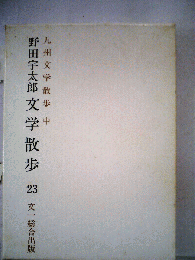 九州文学散歩 中
野田宇太郎 文学散歩 23 文一総合出版